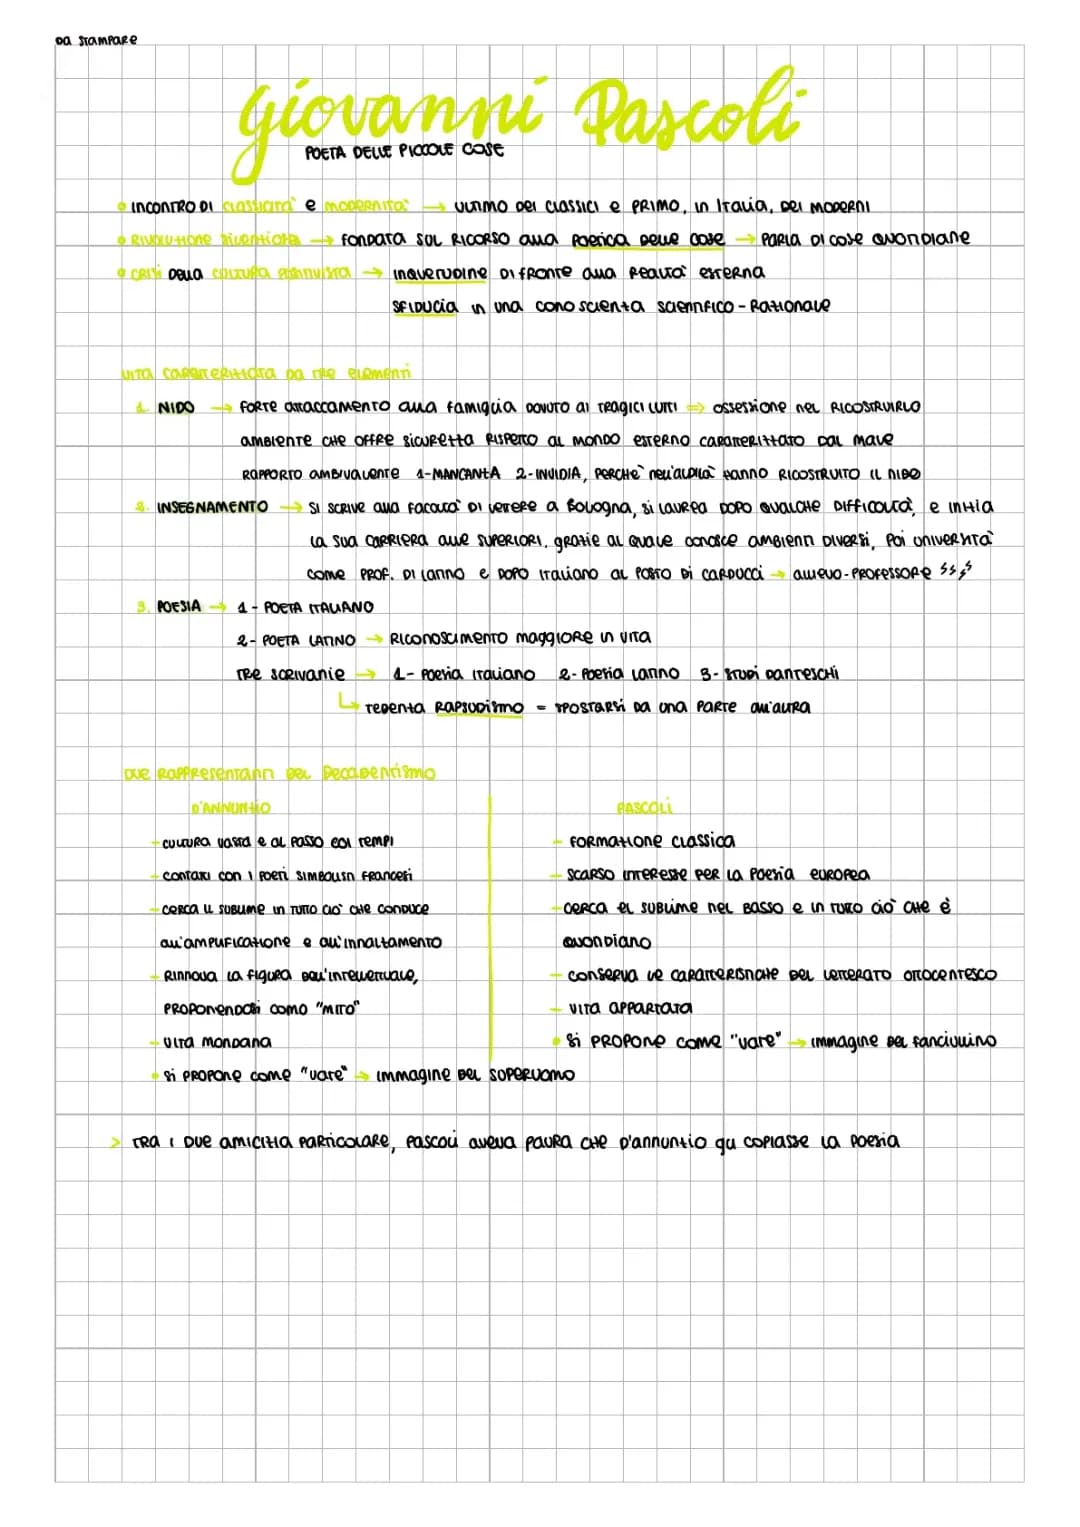 DA STAMPARE
Giovanni Pascoli
POETA DELLE PICCOLE COSE
• INCONTRO DI CLASSICITÀ e MODERNITÀ → ULTIMO DEI CLASSICI e PRIMO, IN ITALIA, DEI MODERNI
• RIVOLUZIONE SILENZIOSA → FONDATA SUL RICORSO alla POETICA DELLE COSE → PARLA DI COSE QUOTIDIANE
• CRISI DELLA CULTURA POSITIVISTA → INQUIETUDINE DI FRONTE alla REALTÀ ESTERNA
SFIDUCIA IN UNA CONOSCIENZA SCIENTIFICO-RAZIONALE
VITA CARATTERIZZATA DA TRE ELEMENTI
1. NIDO → FORTE ATTACCAMENTO alla FAMIGLIA DOVUTO AI TRAGICI LUTTI ⇒ OSSESSIONE NEL RICOSTRUIRLO
AMBIENTE CHE OFFRE SICUREZZA RISPETTO AL MONDO ESTERNO CARATTERIZZATO DAL MALE
RAPPORTO AMBIVALENTE 1-MANCANZA 2-INVIDIA, PERCHÈ NELL'ALDILÀ HANNO RICOSTRUITO IL NIDO
2. INSEGNAMENTO → SI SCRIVE alla FACOLTÀ DI LETTERE A BOLOGNA, SI LAUREA DOPO QUALCHE DIFFICOLTÀ, e INIZIA
LA SUA CARRIERA ALLE SUPERIORI, GRAZIE AL QUALE CONOSCE AMBIENTI DIVERSI, POI UNIVERSITÀ
COME PROF. DI LATINO e DOPO ITALIANO AL POSTO DI CARDUCCI → ALLIEVO-PROFESSORE ⚡⚡⚡
3. POESIA → 1- POETA ITALIANO
2- POETA LATINO → RICONOSCIMENTO MAGGIORE IN VITA
TRE SCRIVANIE → 1- POESIA ITALIANO 2- POESIA LATINO 3- STUDI DANTESCHI
↳ TEDENZA RAPSODISMO = SPOSTARSI DA UNA PARTE ALL'ALTRA
DUE RAPPRESENTANTI DEL DECADENTISMO
D'ANNUNZIO
- CULTURA VASTA e AL PASSO COI TEMPI
- CONTATTI CON I POETI SIMBOLISTI FRANCESI
- CERCA IL SUBLIME IN TUTTO CIÒ CHE CONDUCE
ALL'AMPLIFICAZIONE e ALL'INNALZAMENTO
- RINNOVA LA FIGURA DELL'INTELLETTUALE,
PROPONENDOSI COMO "MITO"
- VITA MONDANA
• SI PROPONE COME "VATE" → IMMAGINE DEL SUPERUOMO
PASCOLI
- FORMAZIONE CLASSICA
- SCARSO INTERESSE PER LA POESIA EUROPEA
- CERCA EL SUBLIME NEL BASSO e IN TUTTO CIÒ CHE È
QUONDIANO
- CONSERVA LE CARATTERISTICHE DEL LETTERATO OTTOCENTESCO
- VITA APPARTATA
• SI PROPONE COME "VATE" → IMMAGINE DEL FANCIULLINO
> TRA I DUE AMICIZIA PARTICOLARE, PASCOLI AVEVA PAURA CHE D'ANNUNZIO GLI COPIASSE LA POESIA